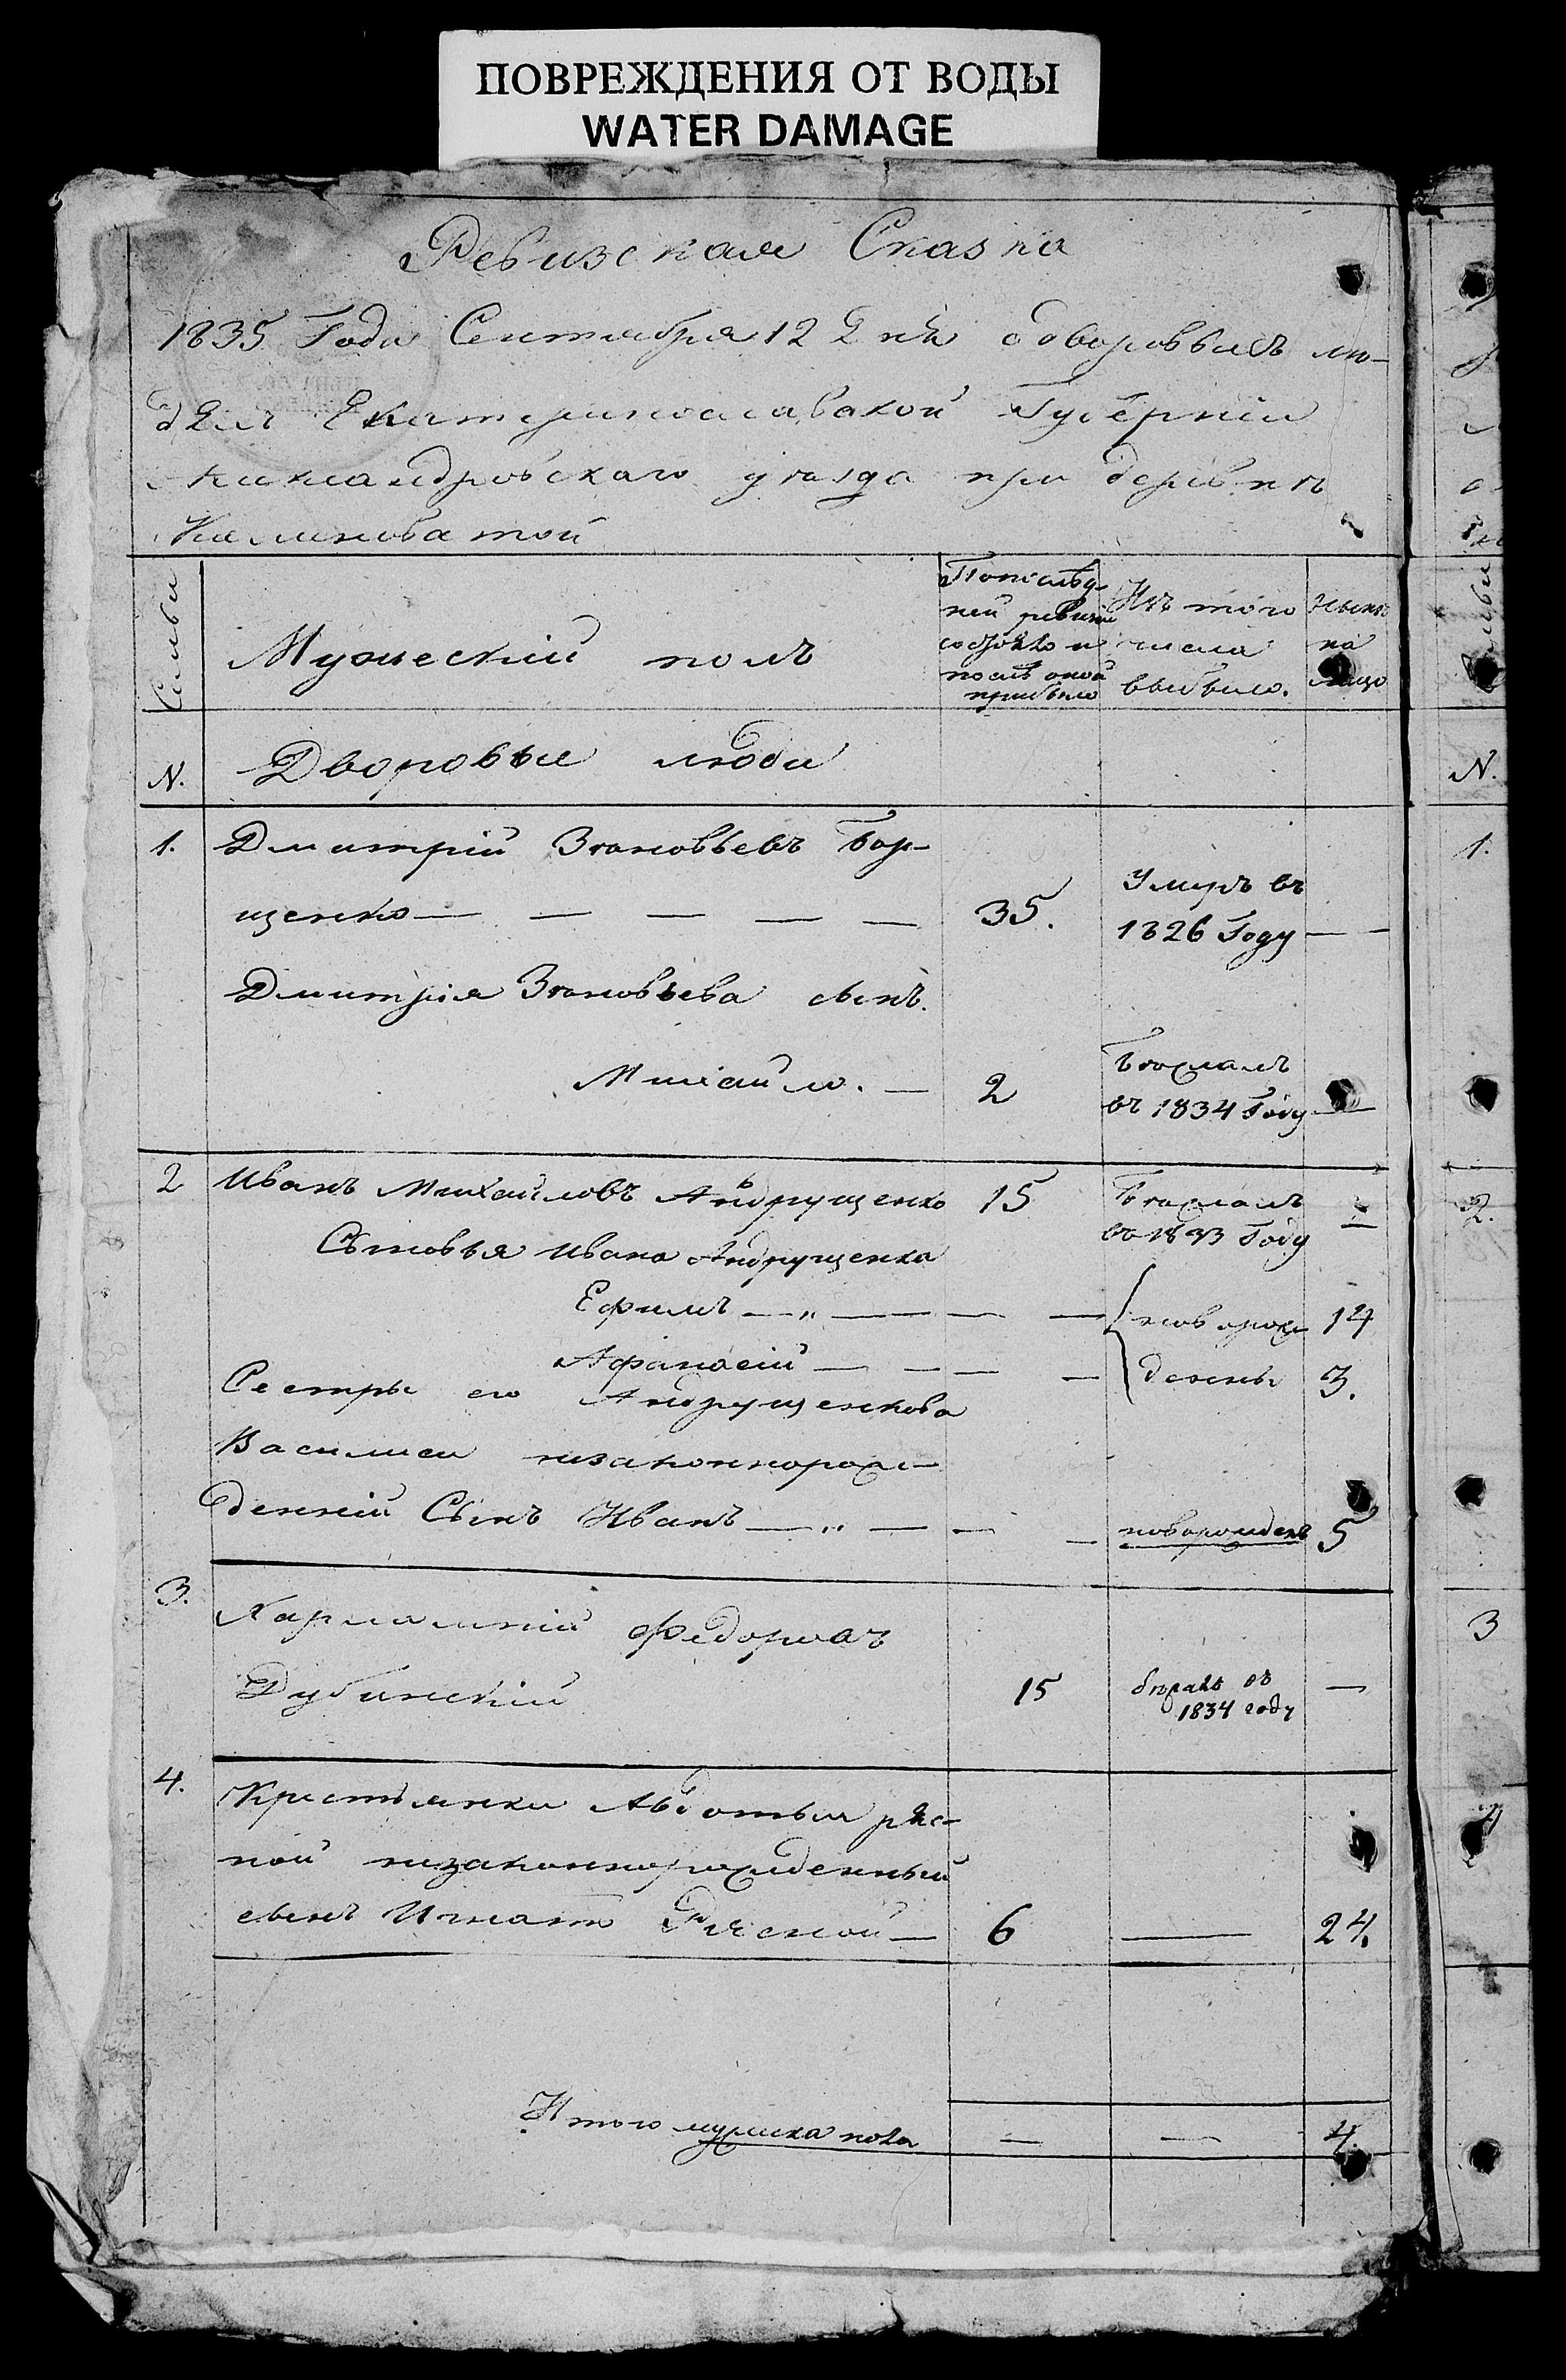 ПОВРЕЖДЕНИЯ ОТ ВОДЫ
WATER DAMAGE
Ревизская Сказка
1835 Года Сентября 12 Дня одворовыхъ лю-
дЕхъ Екатеринославской Губерніи
Александровскаго уѣзда при деревнѣ
Камековатой
Семьи
Мужескій полъ
Попослѣд-
ней ревизіи
состояло и
послѣ оной
прибыло
Изъ того
числа
выбыло.
Нынѣ
на
лицо
N.
Дворовые люди
N.
1.
Дмитрій Зѣновьевъ Бор-
щенко — — — — — 35. Умеръ въ
1826 Году —
Дмитрія Зѣновьева сынъ.
Михайло. — 2 Бѣжалъ
въ 1834 Году —
1.
2 Иванъ Михайловъ Андрущенко 15 Бѣжалъ
въ 1833 Году —
2.
Сыновья Ивана Андрущенка
Ефимъ — „ — — — новорож 14
Афанасій — — — — дены 3.
Сестры его Андрущенкова
Василиси незаконнорож-
денній Сынъ Иванъ — „ — — — новорожденъ 5
3. Харлампій Федоровъ
Дубинскій 15 бѣжалъ въ
1834 году —
3
4. Крестьянки Авдотьи рѣс-
ной незаконнорожденный
сынъ Игнатъ Рѣсной — 6 — 24.
4
Итого мужска пола — — 4.